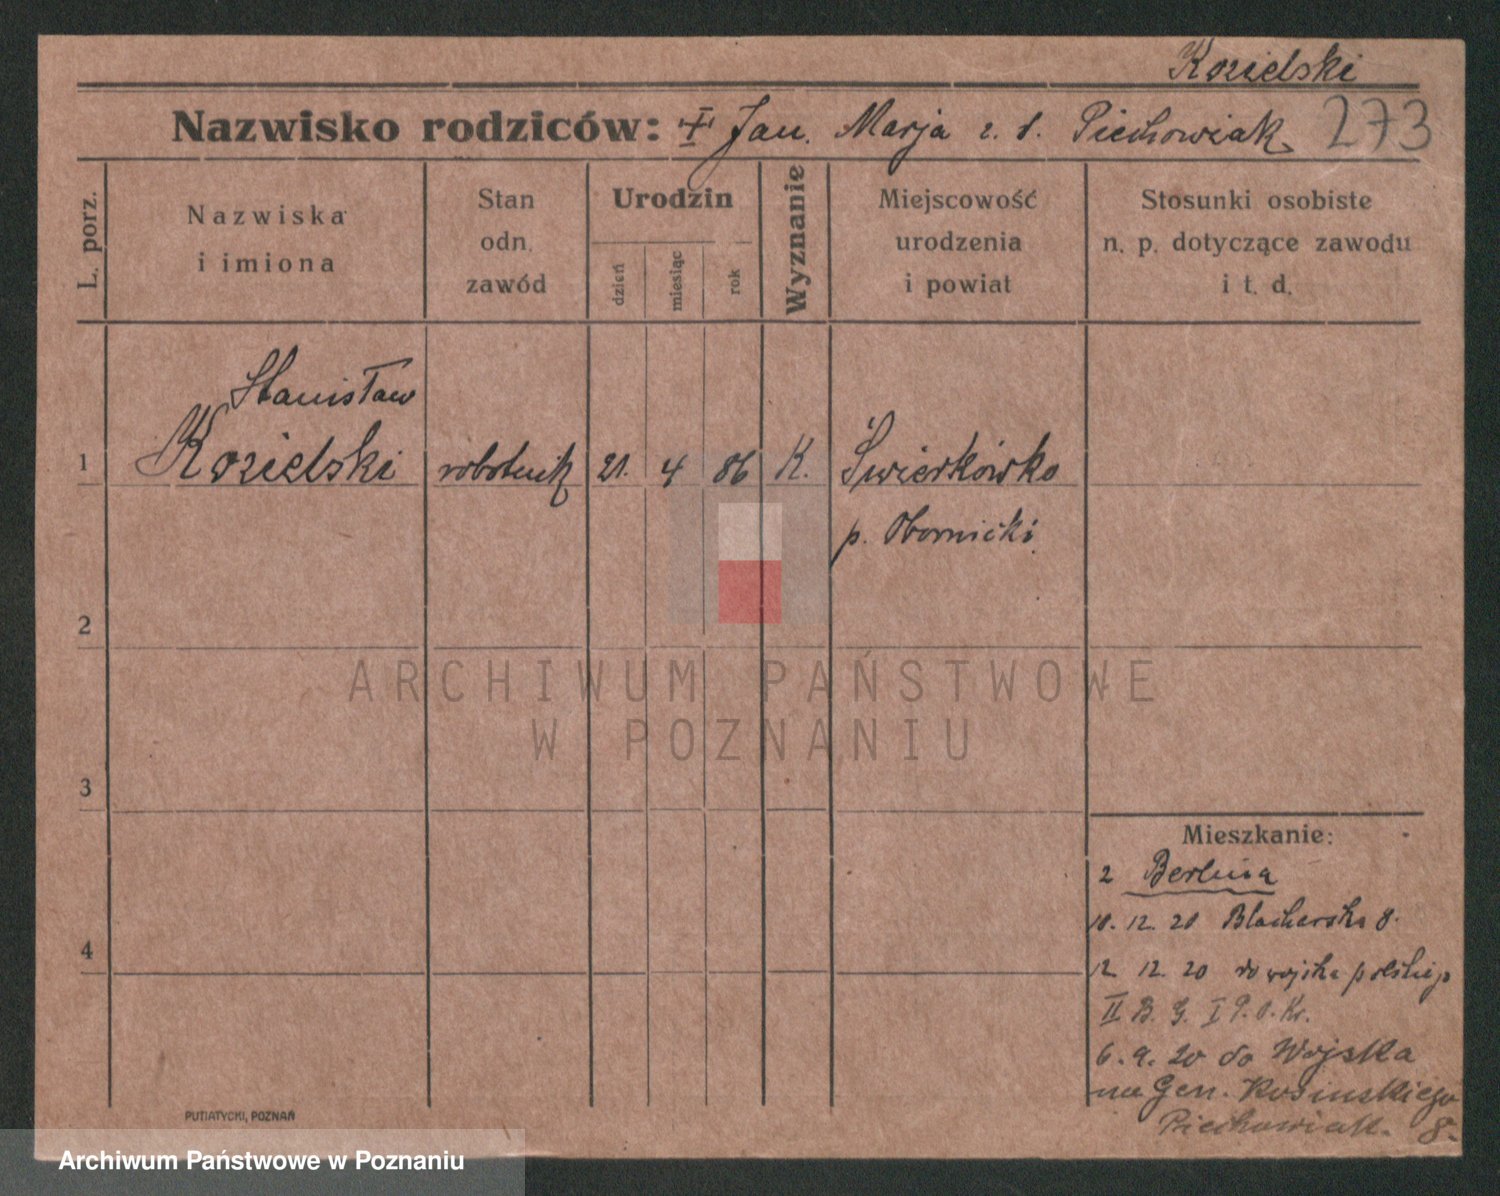 Kozielski
Nazwisko rodziców: Jan. Marja z. d. Piechowiak 273
L. porz.
Nazwiska
i imiona
Stan
odn.
zawód
Urodzin
dzień
miesiąc
rok
Wyznanie
Miejscowość
urodzenia
i powiat
Stosunki osobiste
n. p. dotyczące zawodu
i t. d.
Stanisław
1 Kozielski robotnik 21. 4 86 K. Świerkówko
p. Obornicki
2
ARCHIWUM PAŃSTWOWE
W POZNANIU
3
Mieszkanie:
z Berlina
10. 12. 20 Blacharska 8.
4
12 12. 20 do wojska polskiego
II B. G. I P. Kr.
6. 9. 20 do Wojska
na Gen. Kosinskiego
Piechowiak. 8.
PUTIATYCKI, POZNAŃ
Archiwum Państwowe w Poznaniu